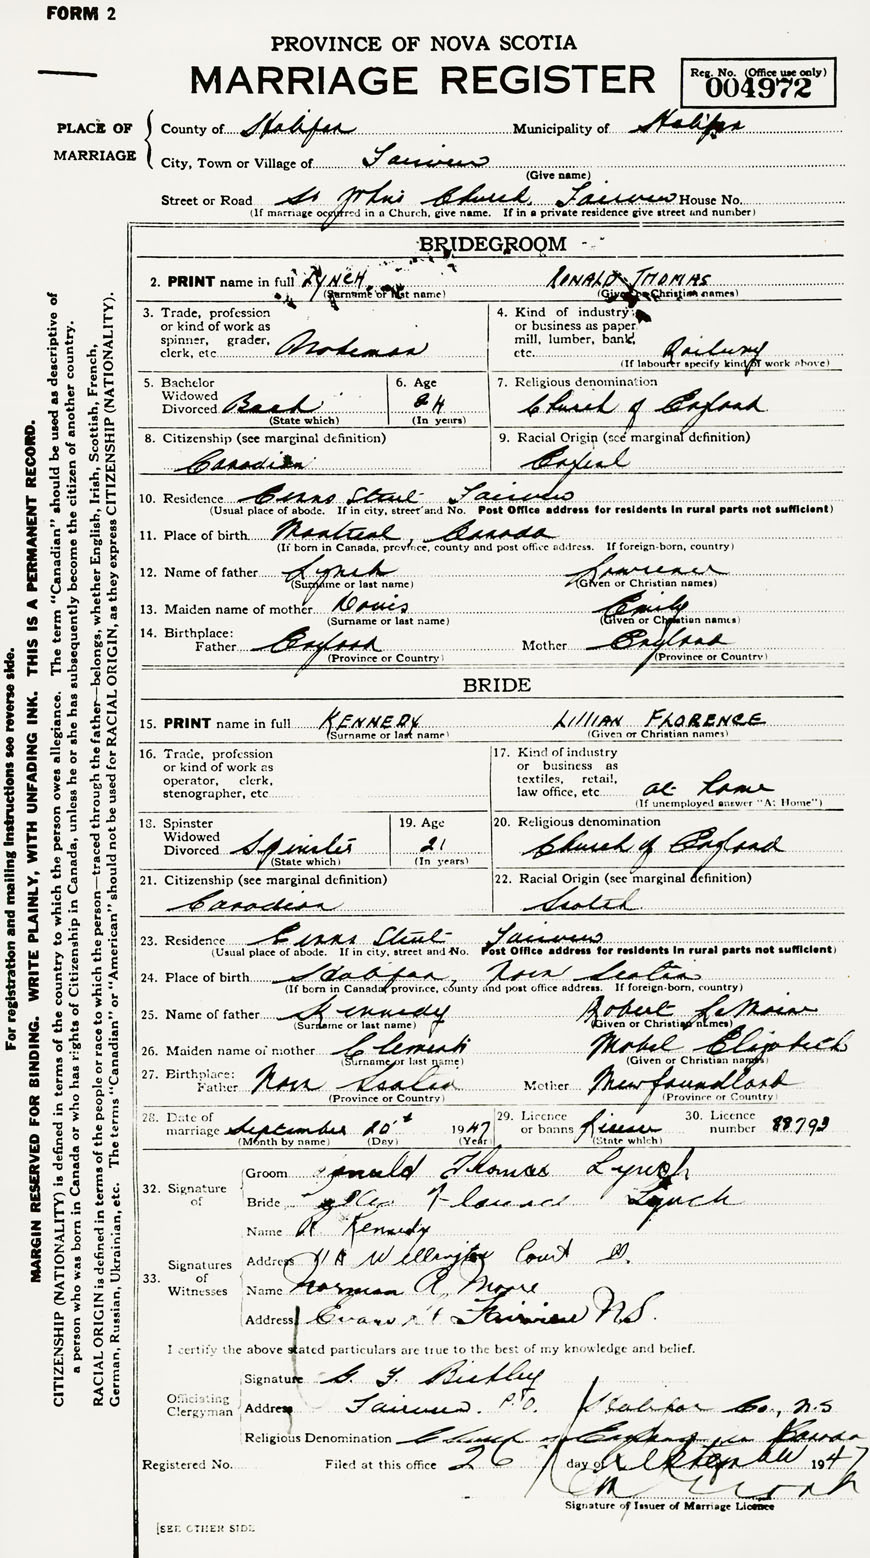 FORM 2
PROVINCE OF NOVA SCOTIA
MARRIAGE REGISTER
Reg. No. (Office use only)
004972
PLACE OF MARRIAGE
County of Halifax Municipality of Halifax
City, Town or Village of Fairview
(Give name)
Street or Road St Johns Church, Fairview House No.
(If marriage occurred in a Church, give name. If in a private residence give street and number)
BRIDEGROOM
2. PRINT name in full LYNCH RONALD THOMAS
(Surname or last name) (Given or Christian names)
3. Trade, profession or kind of work as spinner, grader, clerk, etc.
4. Kind of industry or business as paper mill, lumber, bank, etc. Railway
(If labourer specify kind of work above)
5. Bachelor Widowed Divorced Bach
(State which)
6. Age 24
(In years)
7. Religious denomination
Church of England
8. Citizenship (see marginal definition)
Canadian
9. Racial Origin (see marginal definition)
10. Residence Evans Street Fairview
(Usual place of abode. If in city, street and No. Post Office address for residents in rural parts not sufficient)
11. Place of birth Montreal, Canada
(If born in Canada, province, county and post office address. If foreign-born, country)
12. Name of father Lynch Lawrence
(Surname or last name) (Given or Christian names)
13. Maiden name of mother Davis Emily
(Surname or last name) (Given or Christian names)
14. Birthplace:
Father England Mother England
(Province or Country) (Province or Country)
BRIDE
15. PRINT name in full KENNEDY LILLIAN FLORENCE
(Surname or last name) (Given or Christian names)
16. Trade, profession or kind of work as operator, clerk, stenographer, etc
17. Kind of industry or business as textiles, retail, law office, etc. at home
(If unemployed answer "At Home")
18. Spinster Widowed Divorced Spinster
(State which)
19. Age 21
(In years)
20. Religious denomination
Church of England
21. Citizenship (see marginal definition)
Canadian
22. Racial Origin (see marginal definition)
Scotch
23. Residence Evans Street Fairview
(Usual place of abode. If in city, street and No. Post Office address for residents in rural parts not sufficient)
24. Place of birth Halifax, Nova Scotia
(If born in Canada province, county and post office address. If foreign-born, country)
25. Name of father Kennedy Robert LeMoine
(Surname or last name) (Given or Christian names)
26. Maiden name of mother Clements Mabel Elizabeth
(Surname or last name) (Given or Christian names)
27. Birthplace:
Father Nova Scotia Mother Newfoundland
(Province or Country) (Province or Country)
28. Date of marriage September 20th 1947
(Month by name) (Day) (Year)
29. Licence or banns License
(State which)
30. Licence number 88793
32. Signature of
Groom Ronald Thomas Lynch
Bride Florence Lynch
33. Signatures of Witnesses
Name R Kennedy
Address Wellington Court
Name Norman A. Moore
Address Evans St Fairview N.S.
I certify the above stated particulars are true to the best of my knowledge and belief.
Officiating Clergyman
Signature G. F.
Address Fairview. P.O. Halifax Co., N.S
Religious Denomination Church of England in Canada
Registered No. Filed at this office 26 day of September 1947
Signature of Issuer of Marriage Licence
[SEE OTHER SIDE
For registration and mailing instructions see reverse side.
MARGIN RESERVED FOR BINDING. WRITE PLAINLY, WITH UNFADING INK. THIS IS A PERMANENT RECORD.
CITIZENSHIP (NATIONALITY) is defined in terms of the country to which the person owes allegiance. The term "Canadian" should be used as descriptive of
a person who was born in Canada or who has rights of Citizenship in Canada, unless he or she has subsequently become the citizen of another country.
RACIAL ORIGIN is defined in terms of the people or race to which the person—traced through the father—belongs, whether English, Irish, Scottish, French,
German, Russian, Ukrainian, etc. The terms "Canadian" or "American" should not be used for RACIAL ORIGIN, as they express CITIZENSHIP (NATIONALITY).